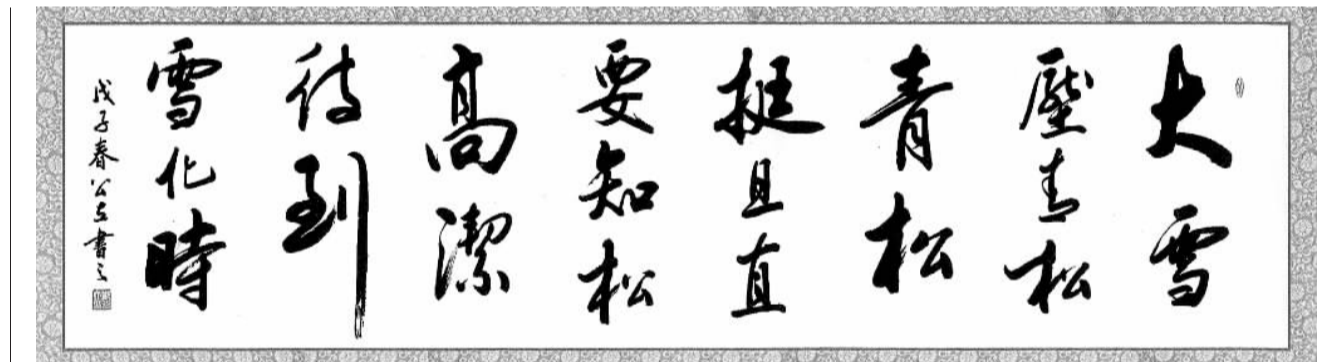 大雪
壓青松
青松
挺且直
要知松
高潔
待到
雪化時
戊子春公書之